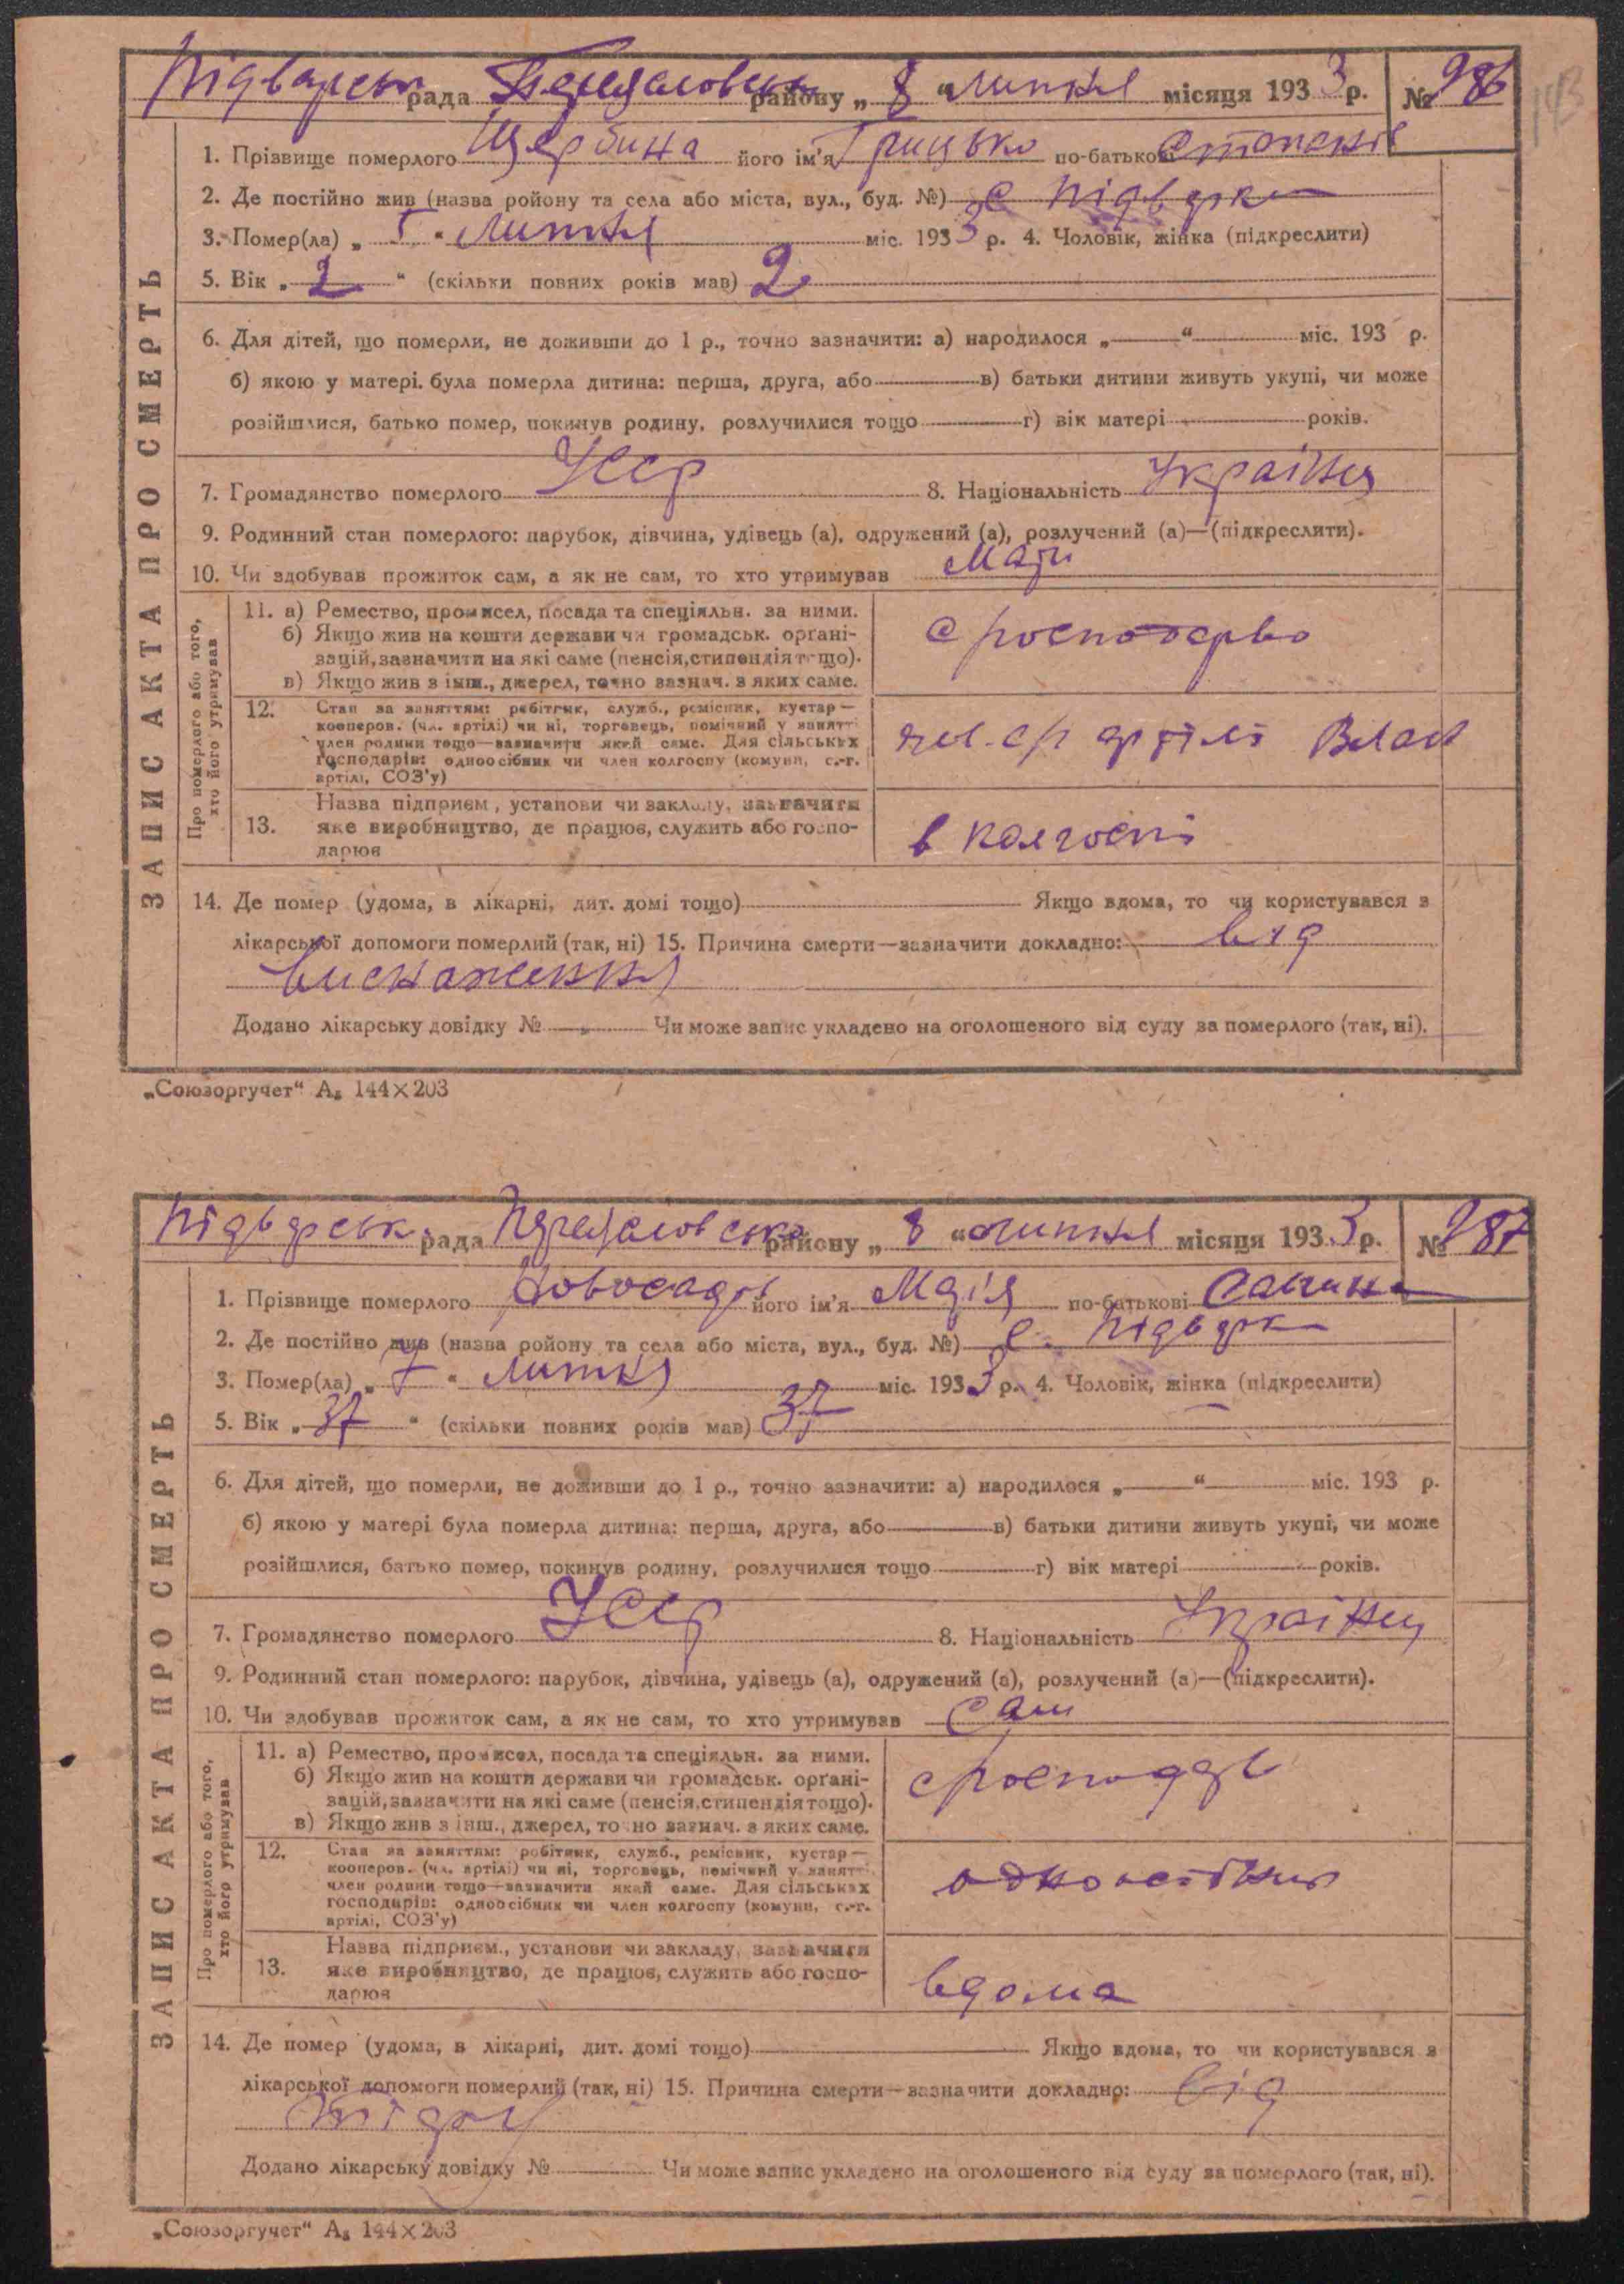 рада района „ 8 “ липня місяця 1933 р. № 986
143
1. Прізвище померлого Щербина його ім'я Грицько по-батькові
2. Де постійно жив (назва ройону та села або міста, вул., буд. №) с Підварки
3. Помер(ла) „ “ липня міс. 1933 р. 4. Чоловік, жінка (підкреслити)
5. Вік „ 2 “ (скільки повних років мав) 2
6. Для дітей, що померли, не доживши до 1 р., точно зазначити: а) народилося „ “ міс. 193 р.
б) якою у матері була померла дитина: перша, друга, або в) батьки дитини живуть укупі, чи може
розійшлися, батько помер, покинув родину, розлучилися тощо г) вік матері років.
7. Громадянство померлого УССР 8. Національність
9. Родинний стан померлого: парубок, дівчина, удівець (а), одружений (а), розлучений (а)—(підкреслити).
10. Чи здобував прожиток сам, а як не сам, то хто утримував Мати
11. а) Ремество, промисел, посада та спеціяльн. за ними.
б) Якщо жив на кошти держави чи громадськ. орґані-
зацій, зазначити на які саме (пенсія, стипендія тощо).
в) Якщо жив з інш., джерел, точно зазнач. з яких саме.
12. Стан за заняттям: робітник, служб., ремісник, кустар—
кооперов. (чл. артілі) чи ні, торговець, помічний у занятті
член родини тощо—зазначити який саме. Для сільських
господарів: одноосібник чи член колгоспу (комуни, с.-г.
артілі, СОЗ'у)
13. Назва підприєм., установи чи закладу, зазначити
яке виробництво, де працює, служить або госпо-
дарює
в колгоспі
Про померлого або того,
хто його утримував
ЗАПИС АКТА ПРО СМЕРТЬ
14. Де помер (удома, в лікарні, дит. домі тощо) Якщо вдома, то чи користувався з
лікарської допомоги померлий (так, ні) 15. Причина смерти—зазначити докладно: від
виснаження
Додано лікарську довідку № Чи може запис укладено на оголошеного від суду за померлого (так, ні).
„Союзоргучет“ А₅ 144×203
рада району „ 8 “ липня місяця 1933 р. № 987
1. Прізвище померлого його ім'я по-батькові
2. Де постійно жив (назва ройону та села або міста, вул., буд. №) с. Підварки
3. Помер(ла) „ 7 “ липня міс. 1933 р. 4. Чоловік, жінка (підкреслити)
5. Вік „ 37 “ (скільки повних років мав) 37
6. Для дітей, що померли, не доживши до 1 р., точно зазначити: а) народилося „ “ міс. 193 р.
б) якою у матері була померла дитина: перша, друга, або в) батьки дитини живуть укупі, чи може
розійшлися, батько помер, покинув родину, розлучилися тощо г) вік матері років.
7. Громадянство померлого УССР 8. Національність
9. Родинний стан померлого: парубок, дівчина, удівець (а), одружений (а), розлучений (а)—(підкреслити).
10. Чи здобував прожиток сам, а як не сам, то хто утримував Сам
11. а) Ремество, промисел, посада та спеціяльн. за ними.
б) Якщо жив на кошти держави чи громадськ. орґані-
зацій, зазначити на які саме (пенсія, стипендія тощо).
в) Якщо жив з інш., джерел, точно зазнач. з яких саме.
12. Стан за заняттям: робітник, служб., ремісник, кустар—
кооперов. (чл. артілі) чи ні, торговець, помічний у занятті
член родини тощо—зазначити який саме. Для сільських
господарів: одноосібник чи член колгоспу (комуни, с.-г.
артілі, СОЗ'у)
13. Назва підприєм., установи чи закладу, зазначити
яке виробництво, де працює, служить або госпо-
дарює
вдома
Про померлого або того,
хто його утримував
ЗАПИС АКТА ПРО СМЕРТЬ
14. Де помер (удома, в лікарні, дит. домі тощо) Якщо вдома, то чи користувався з
лікарської допомоги померлий (так, ні) 15. Причина смерти—зазначити докладно: від
Додано лікарську довідку № Чи може запис укладено на оголошеного від суду за померлого (так, ні).
„Союзоргучет“ А₅ 144×203